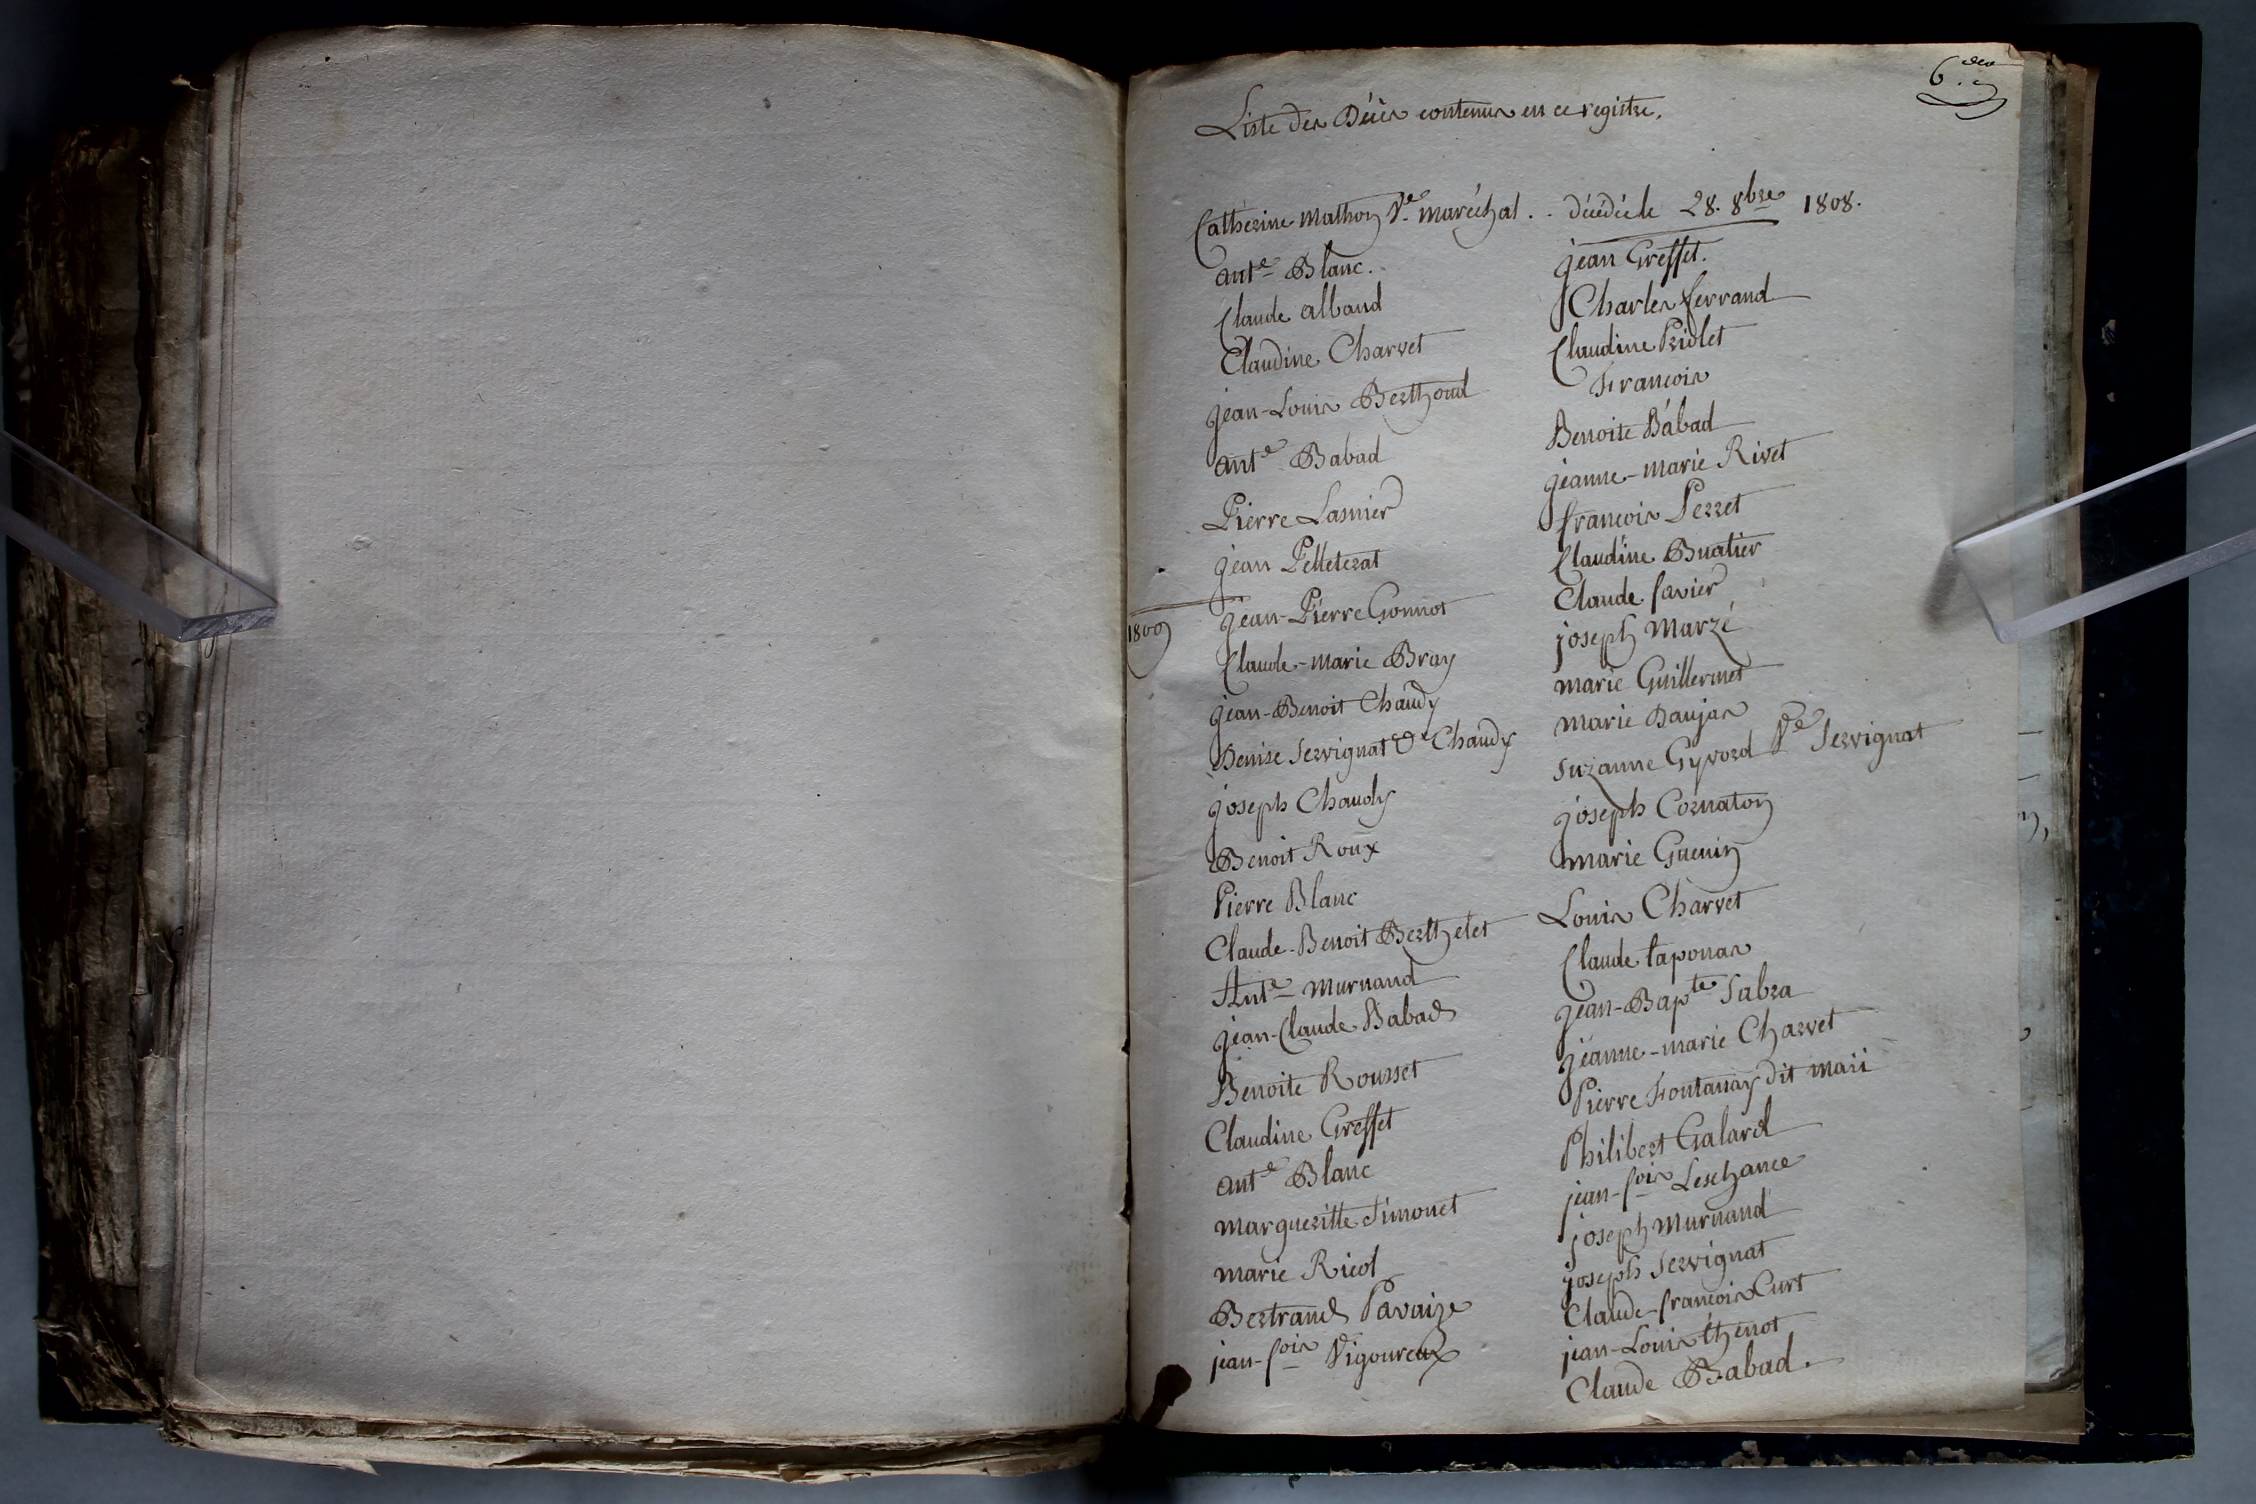 Liste des Décès contenus en ce registre.
Catherine Mathon Ve. maréchal . . décédée le 28. 8bre 1808.
Ante. Blanc.
Claude alband
Claudine Charvet
jean-Louis Berthoud
Ante. Babad
Pierre Lasnier
jean Pelleterat
1809
jean-Pierre Gonnot
Claude-marie Bray
jean-Benoit Chaudy
Denise Servignat Ve Chaudy
joseph Chaudy
Benoit Roux
Pierre Blanc
Claude-Benoit Berthelet
Ante. Murnand
jean-Claude Babad
Benoite Rousset
Claudine Greffet
Ante. Blanc
margueritte Simonet
marie Ricol
Bertrand Pavaize
jean-fois Vigoureux
jean Greffet.
Charles ferrand
Claudine Priolet
François
Benoite Babad
jeanne-marie Rivet
françois Perret
Claudine Buatier
Claude favier
joseph Marzé
marie Guillermet
marie Daujas
Suzanne Gyvord Ve Servignat
joseph Cornaton
marie Guenin
Louis Charvet
Claude taponas
jean-Bapte Sabra
jeanne-marie Charvet
Pierre Fontanay dit
Philibert Galard
jean-fois Leschance
joseph Murnand
joseph Servignat
Claude-françois Curt
jean-Louis thenot
Claude Babad.